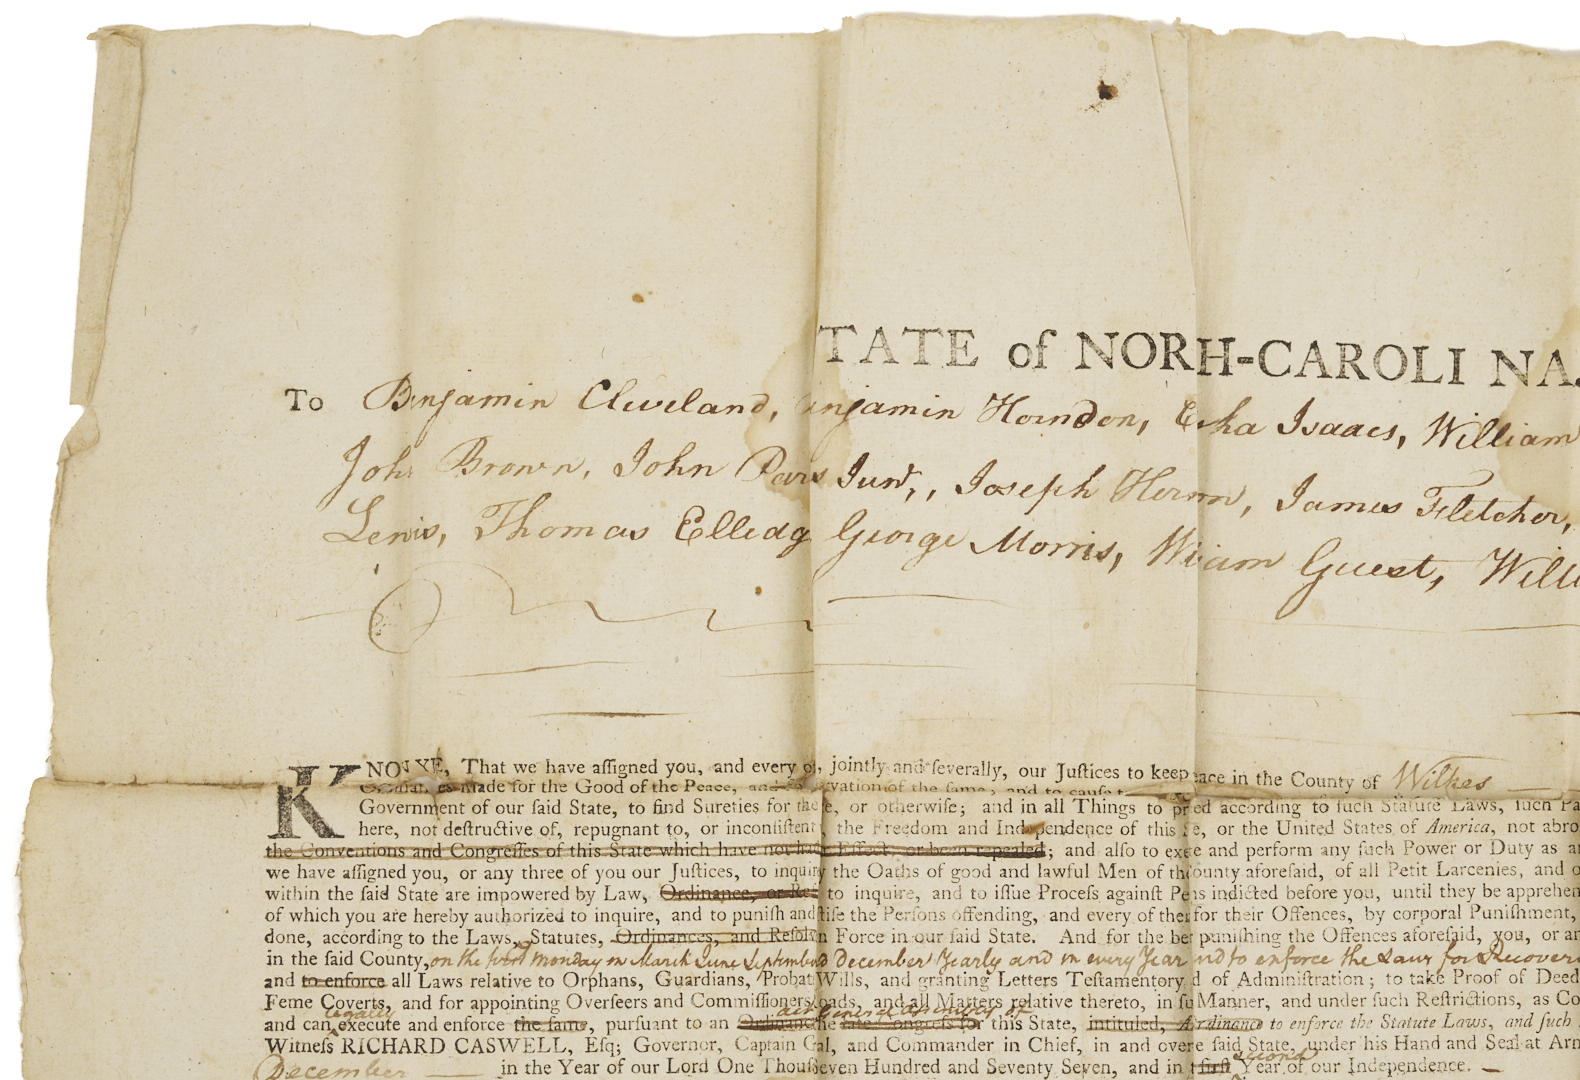 TATE of NORH-CAROLI NA.
To Benjamin Cleveland, enjamin Herndon, Isaacs, William
John Brown, John Pars Junr,, Joseph Hernn, James Fletcher,
Lewis, Thomas Elledg George Morris, Wiiam Guest, Willi
KNO YE, That we have aſſigned you, and every o, jointly and ſeverally, our Juſtices to keep eace in the County of Wilkes
made for the Good of the Peace, vation of the ſame; and to cauſe t
Government of our ſaid State, to find Sureties for the e, or otherwiſe; and in all Things to pr ed according to ſuch Statute Laws, ſuch Pa
here, not deſtructive of, repugnant to, or inconſiſtent, the Freedom and Independence of this e, or the United States of America, not abro
the Conventions and Congreſſes of this State which have not had Effect, or been repealed; and alſo to exe e and perform any ſuch Power or Duty as a
we have aſſigned you, or any three of you our Juſtices, to inquir y the Oaths of good and lawful Men of th County aforeſaid, of all Petit Larcenies, and o
within the ſaid State are impowered by Law, Ordinance, or Reſ to inquire, and to iſſue Proceſs againſt Pe ns indicted before you, until they be apprehen
of which you are hereby authorized to inquire, and to puniſh and tiſe the Perſons offending, and every of the for their Offences, by corporal Puniſhment,
done, according to the Laws, Statutes, Ordinances, and Reſolv n Force in our ſaid State. And for the be puniſhing the Offences aforeſaid, you, or an
in the ſaid County, on the first monday in March June Septembe d December Yearly and in every Year nd to enforce the Laws for Recover
and to enforce all Laws relative to Orphans, Guardians, Probat Wills, and granting Letters Teſtamentory d of Adminiſtration; to take Proof of Deed
Feme Coverts, and for appointing Overſeers and Commiſſioners oads, and all Matters relative thereto, in ſu Manner, and under ſuch Reſtrictions, as Co
legally act General Assembly of
and can execute and enforce the ſame, purſuant to an Ordinance he late Congreſs for this State, intituled, A rdinance to enforce the Statute Laws, and ſuch
Witneſs RICHARD CASWELL, Eſq; Governor, Captain G al, and Commander in Chief, in and over e ſaid State, under his Hand and Seal at Arm
second
December in the Year of our Lord One Thouſ Seven Hundred and Seventy Seven, and in t firſt Year of our Independence.